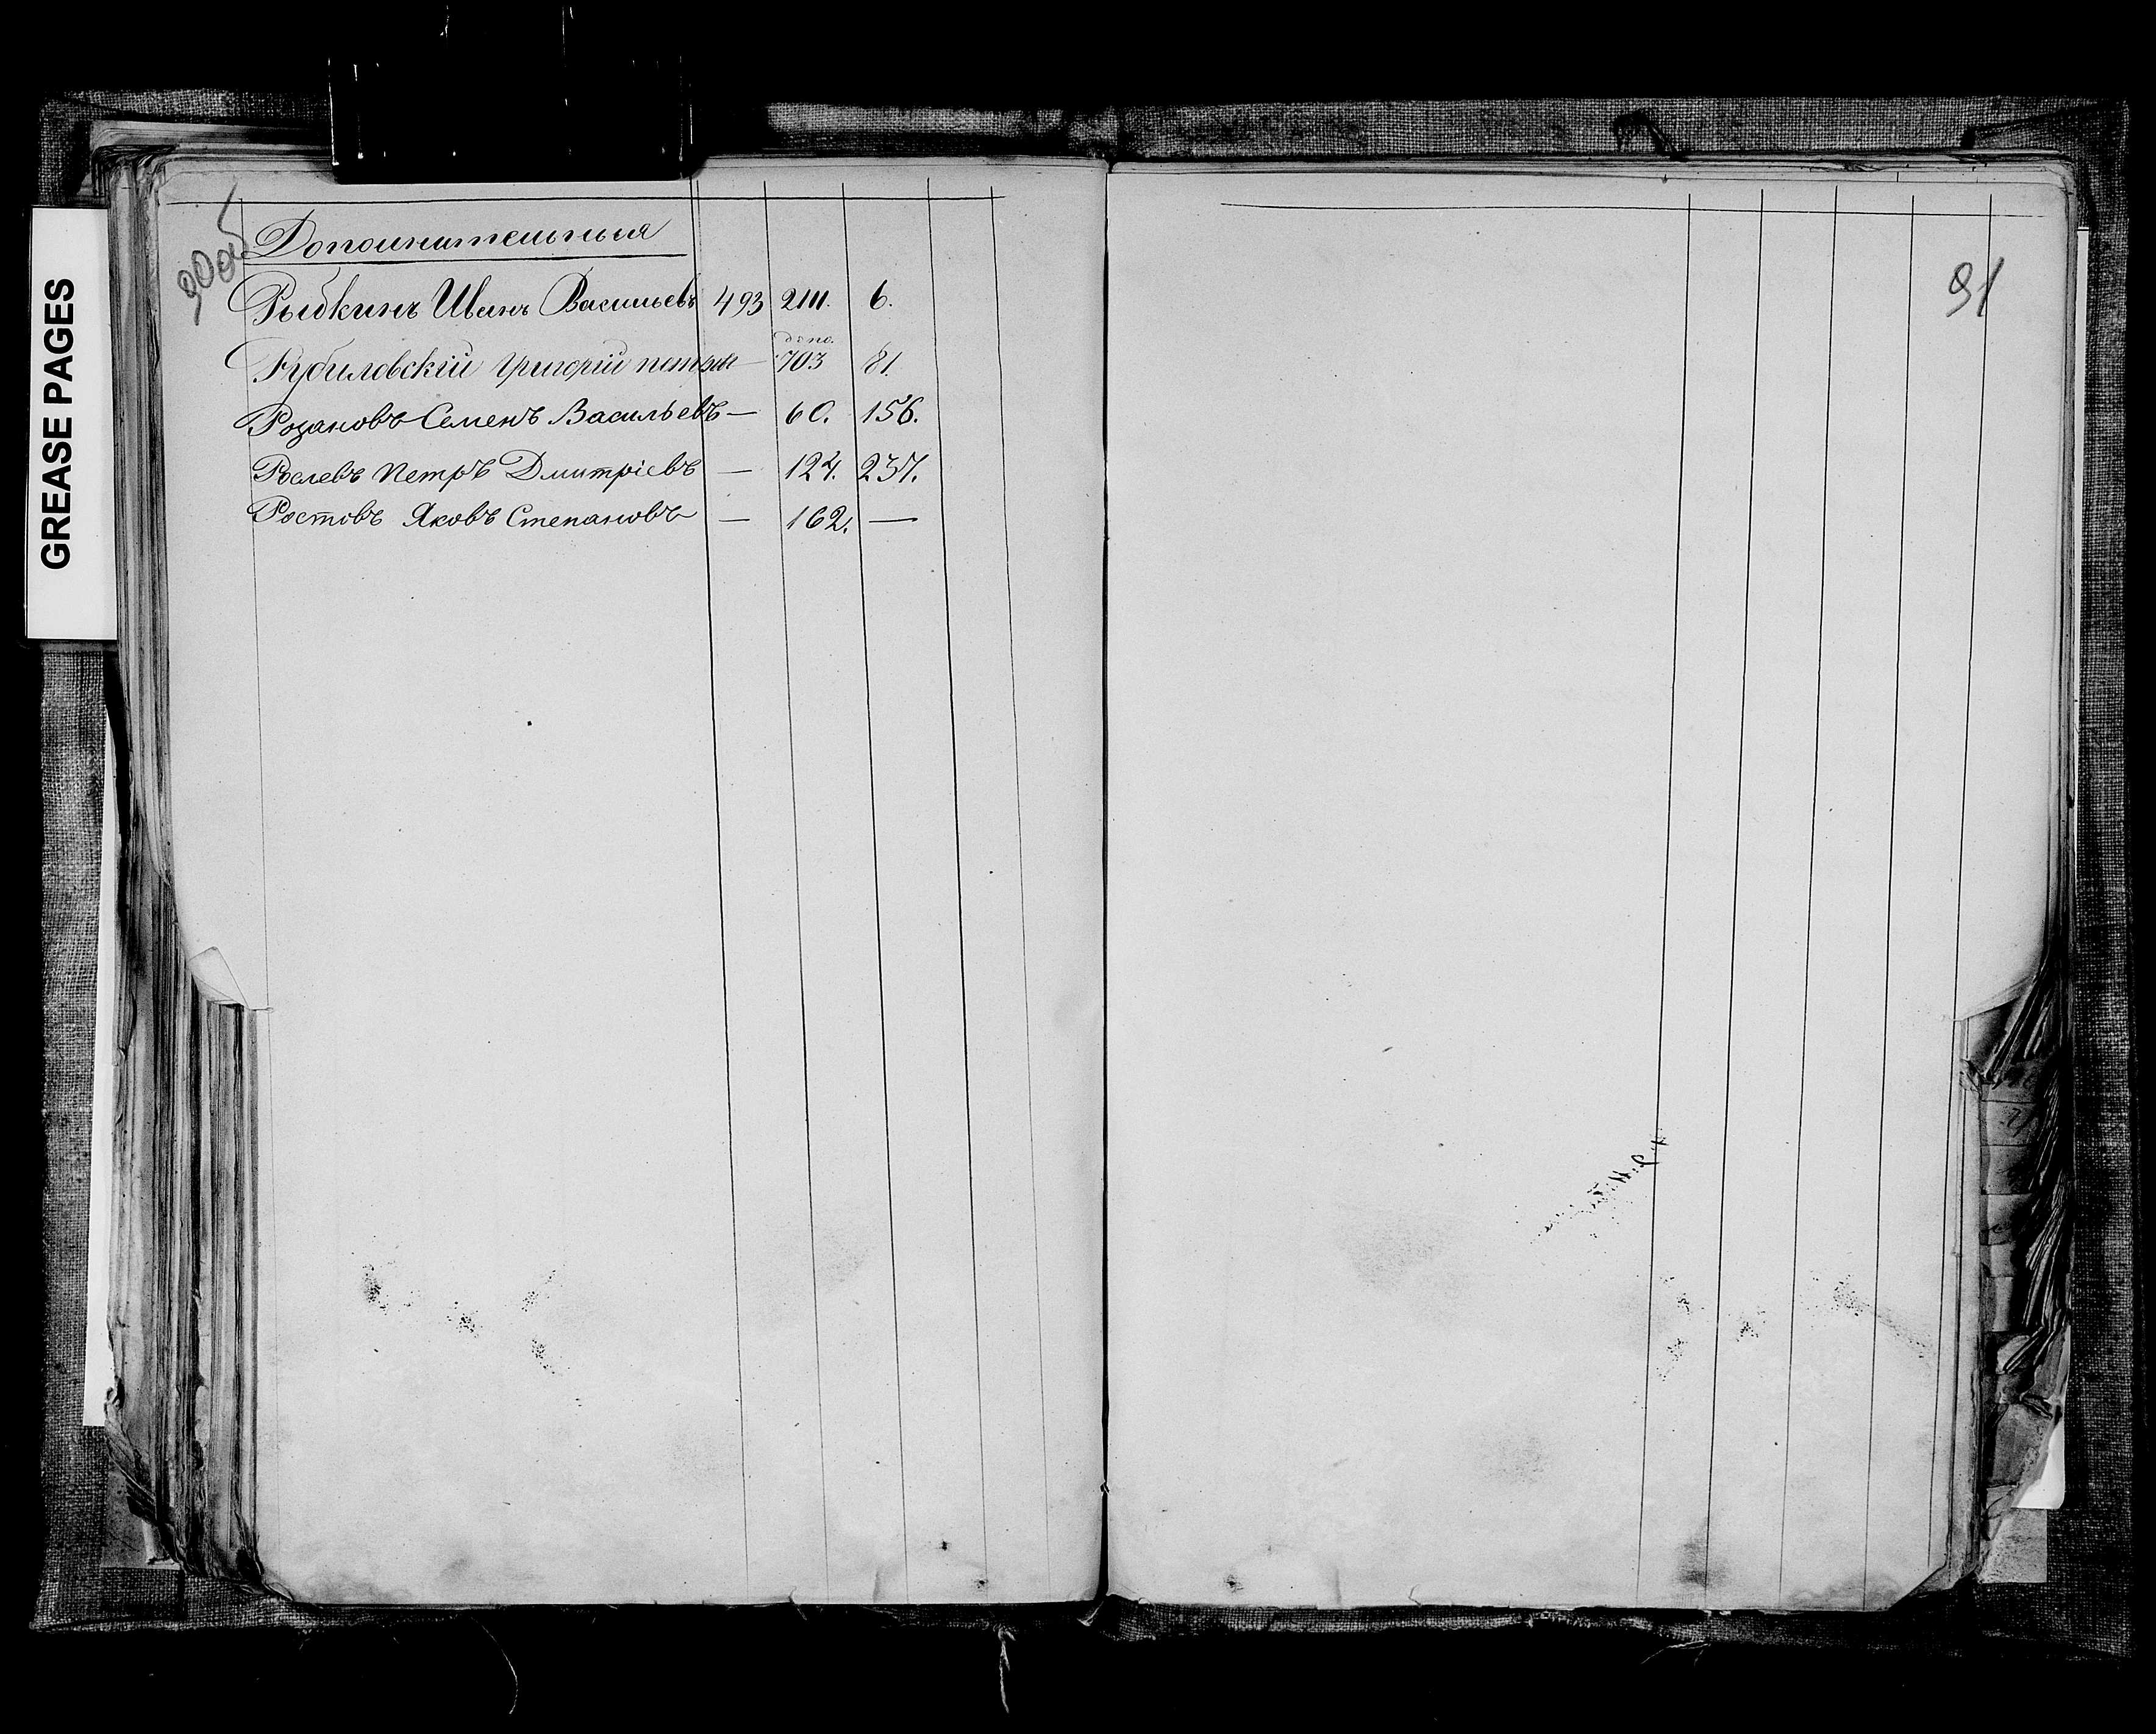 GREASE PAGES
90об
Дополнительныя
Рыбкинъ Иванъ Васильевъ 493 2111. 6.
допо.
Рубиловскій Григорій петров — 703 81.
Розановъ Семенъ Васильевъ — 60. 156.
Рослевъ Петръ Дмитріевъ — 124. 237.
Ростовъ Яковъ Степановъ — 162. —
91